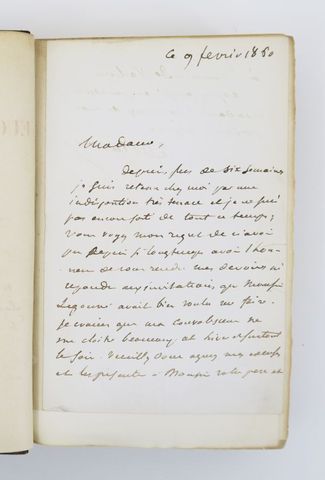 ce 9 février 1880
Madame,
Depuis près de six semaines
je suis retenu chez moi par une
indisposition très tenace et je n'ai
pas encore sorti de tout ce temps;
Vous voyez mon regret de n'avoir
pu depuis si longtemps avoir l'hon-
neur de vous rendre mes devoirs ni
répondre aux invitations que Monsieur
Legouvé avait bien voulu me faire.
Je crains que ma convalescence ne
me cloître beaucoup cet hiver et surtout
le soir. Veuillez donc agréer mes excuses
et les présenter à Monsieur votre père et